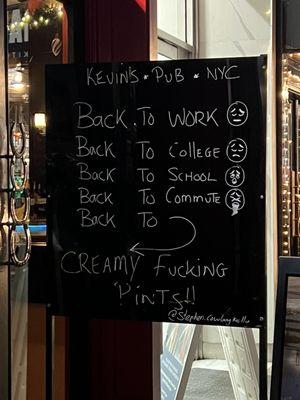 KEVIN'S * PUB * NYC
BACK TO WORK
BACK TO COLLEGE
BACK TO SCHOOL
BACK TO COMMUTE
BACK TO
CREAMY FUCKING
PINTS!!